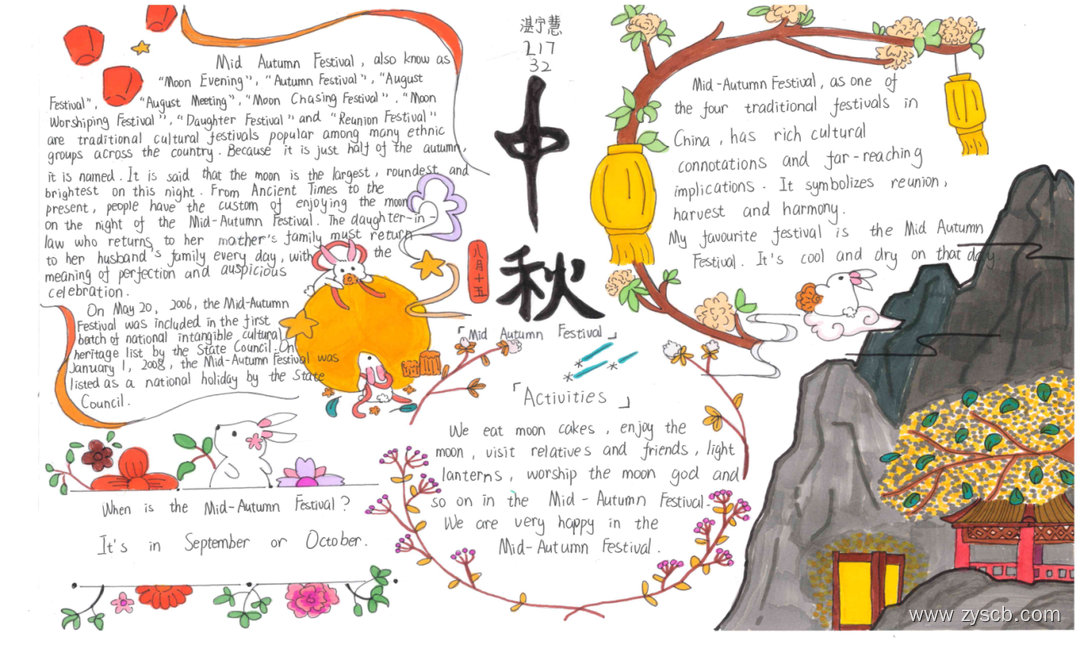 Mid Autumn Festival, also know as
"Moon Evening", "Autumn Festival", "August
Festival", "August Meeting", "Moon Chasing Festival", "Moon
Worshiping Festival", "Daughter Festival" and "Reunion Festival"
are traditional cultural festivals popular among many ethnic
groups across the country. Because it is just half of the autumn,
it is named. It is said that the moon is the largest, roundest and
brightest on this night. From Ancient Times to the
present, people have the custom of enjoying the moon
on the night of the Mid-Autumn Festival. The daughter-in-
law who returns to her mother's family must return
to her husband's family every day, with the
meaning of perfection and auspicious
celebration.
On May 20, 2006, the Mid-Autumn
Festival was included in the first
batch of national intangible cultural
heritage list by the State Council. On
January 1, 2008, the Mid-Autumn Festival was
listed as a national holiday by the State
Council.
When is the Mid-Autumn Festival?
It's in September or October.
湛宁慧
217
32
中
秋
八月十五
「Mid Autumn Festival」
「Activities」
We eat moon cakes, enjoy the
moon, visit relatives and friends, light
lanterns, worship the moon god and
so on in the Mid-Autumn Festival.
We are very happy in the
Mid-Autumn Festival.
Mid-Autumn Festival, as one of
the four traditional festivals in
China, has rich cultural
connotations and far-reaching
implications. It symbolizes reunion,
harvest and harmony.
My favourite festival is the Mid Autumn
Festival. It's cool and dry on that day
www.zyscb.com